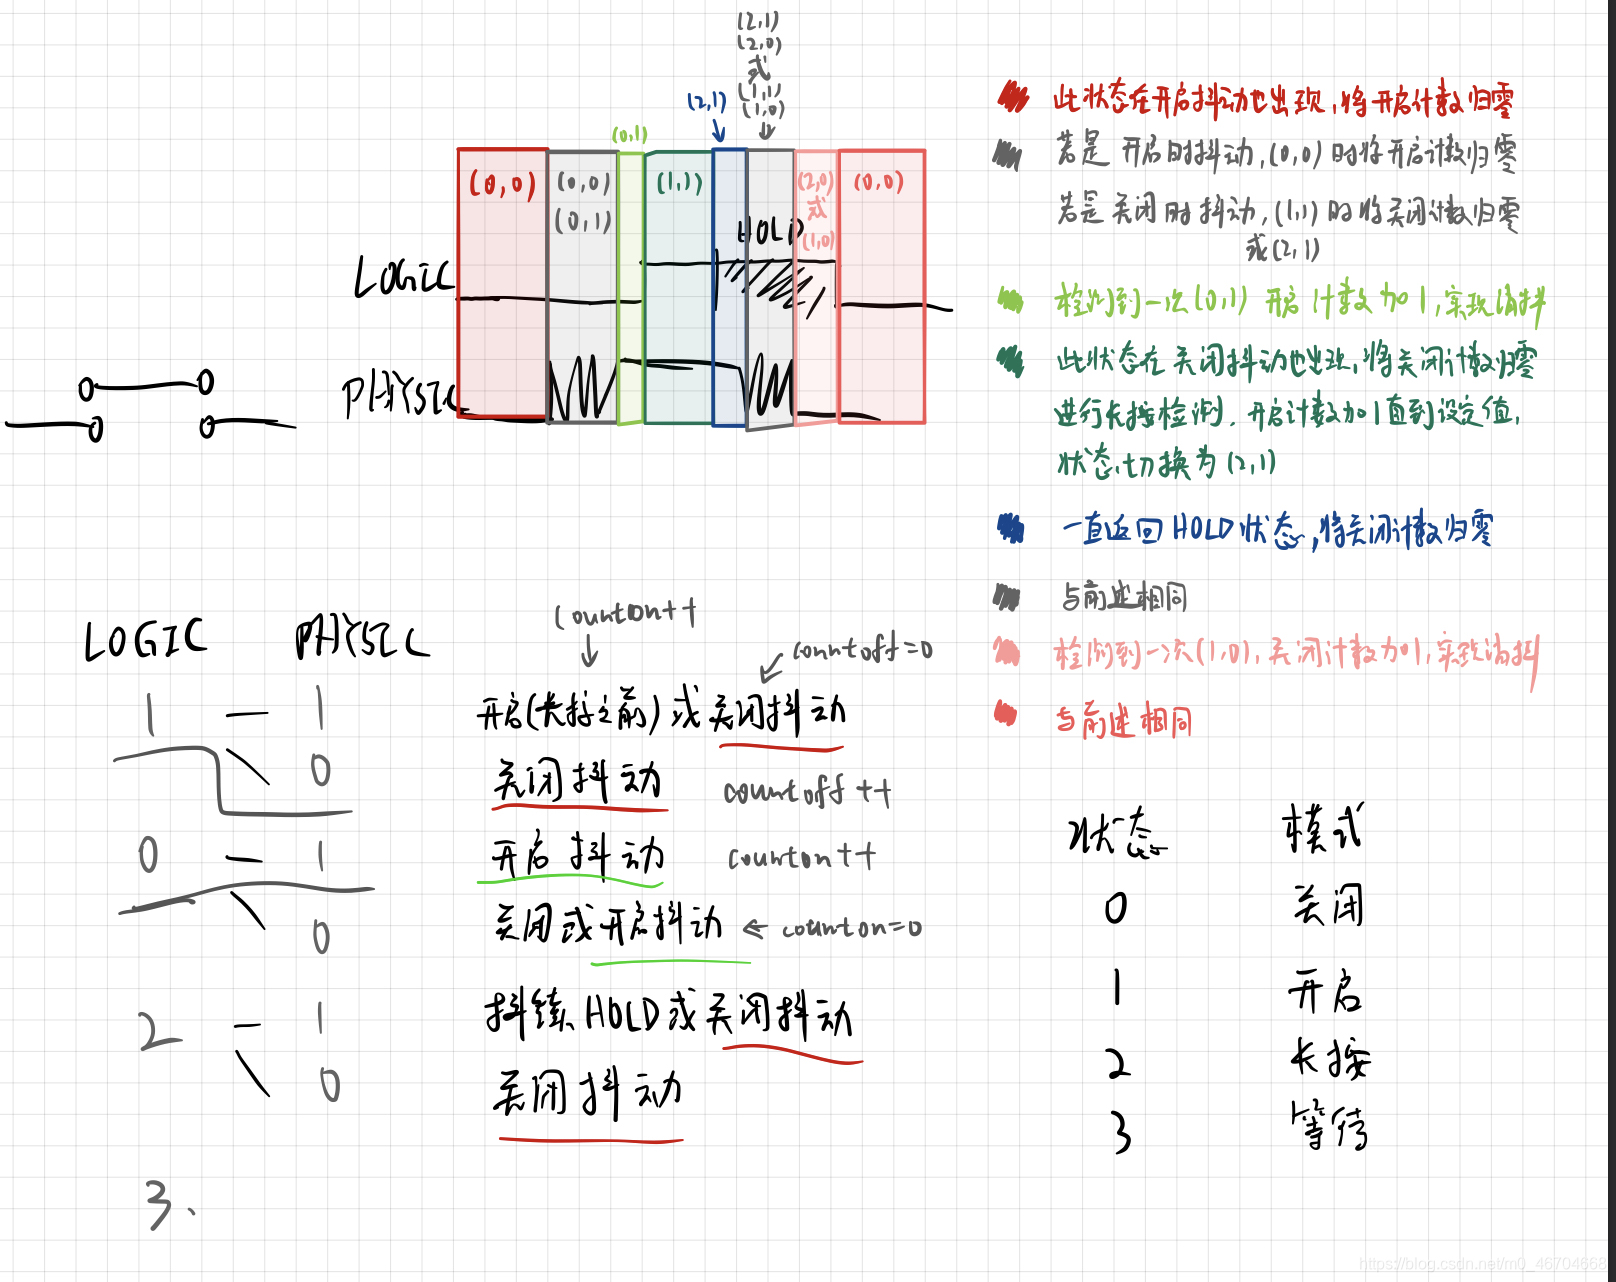 (2,1)
(2,0)
或
(1,1)
(1,0)
(2,1)
(0,1)
(0,0)
(0,0)
(0,1)
(1,1)
HOLD
(2,0)
或
(1,0)
(0,0)
LOGIC
PHYSIC
此状态在开启抖动也出现,将开启计数归零
若是 开启时抖动,(0,0)时将开启计数归零
若是关闭时抖动,(1,1)时将关闭计数归零
或(2,1)
检测到一次(0,1) 开启计数加1,实现消抖
此状态在关闭抖动也出现,将关闭计数归零
进行长按检测.开启计数加1直到设定值,
状态切换为(2,1)
一直返回HOLD状态,将关闭计数归零
与前述相同
检测到一次(1,0),关闭计数加1,实现消抖
与前述相同
LOGIC PHYSIC
Counton++
countoff=0
1 — 1 开启(长按之前)或关闭抖动
0 关闭抖动 countoff++
0 — 1 开启抖动 counton++
0 关闭或开启抖动 ← counton=0
2 — 1 持续HOLD或关闭抖动
0 关闭抖动
3、
状态 模式
0 关闭
1 开启
2 长按
3 等待
https://blog.csdn.net/m0_46704668